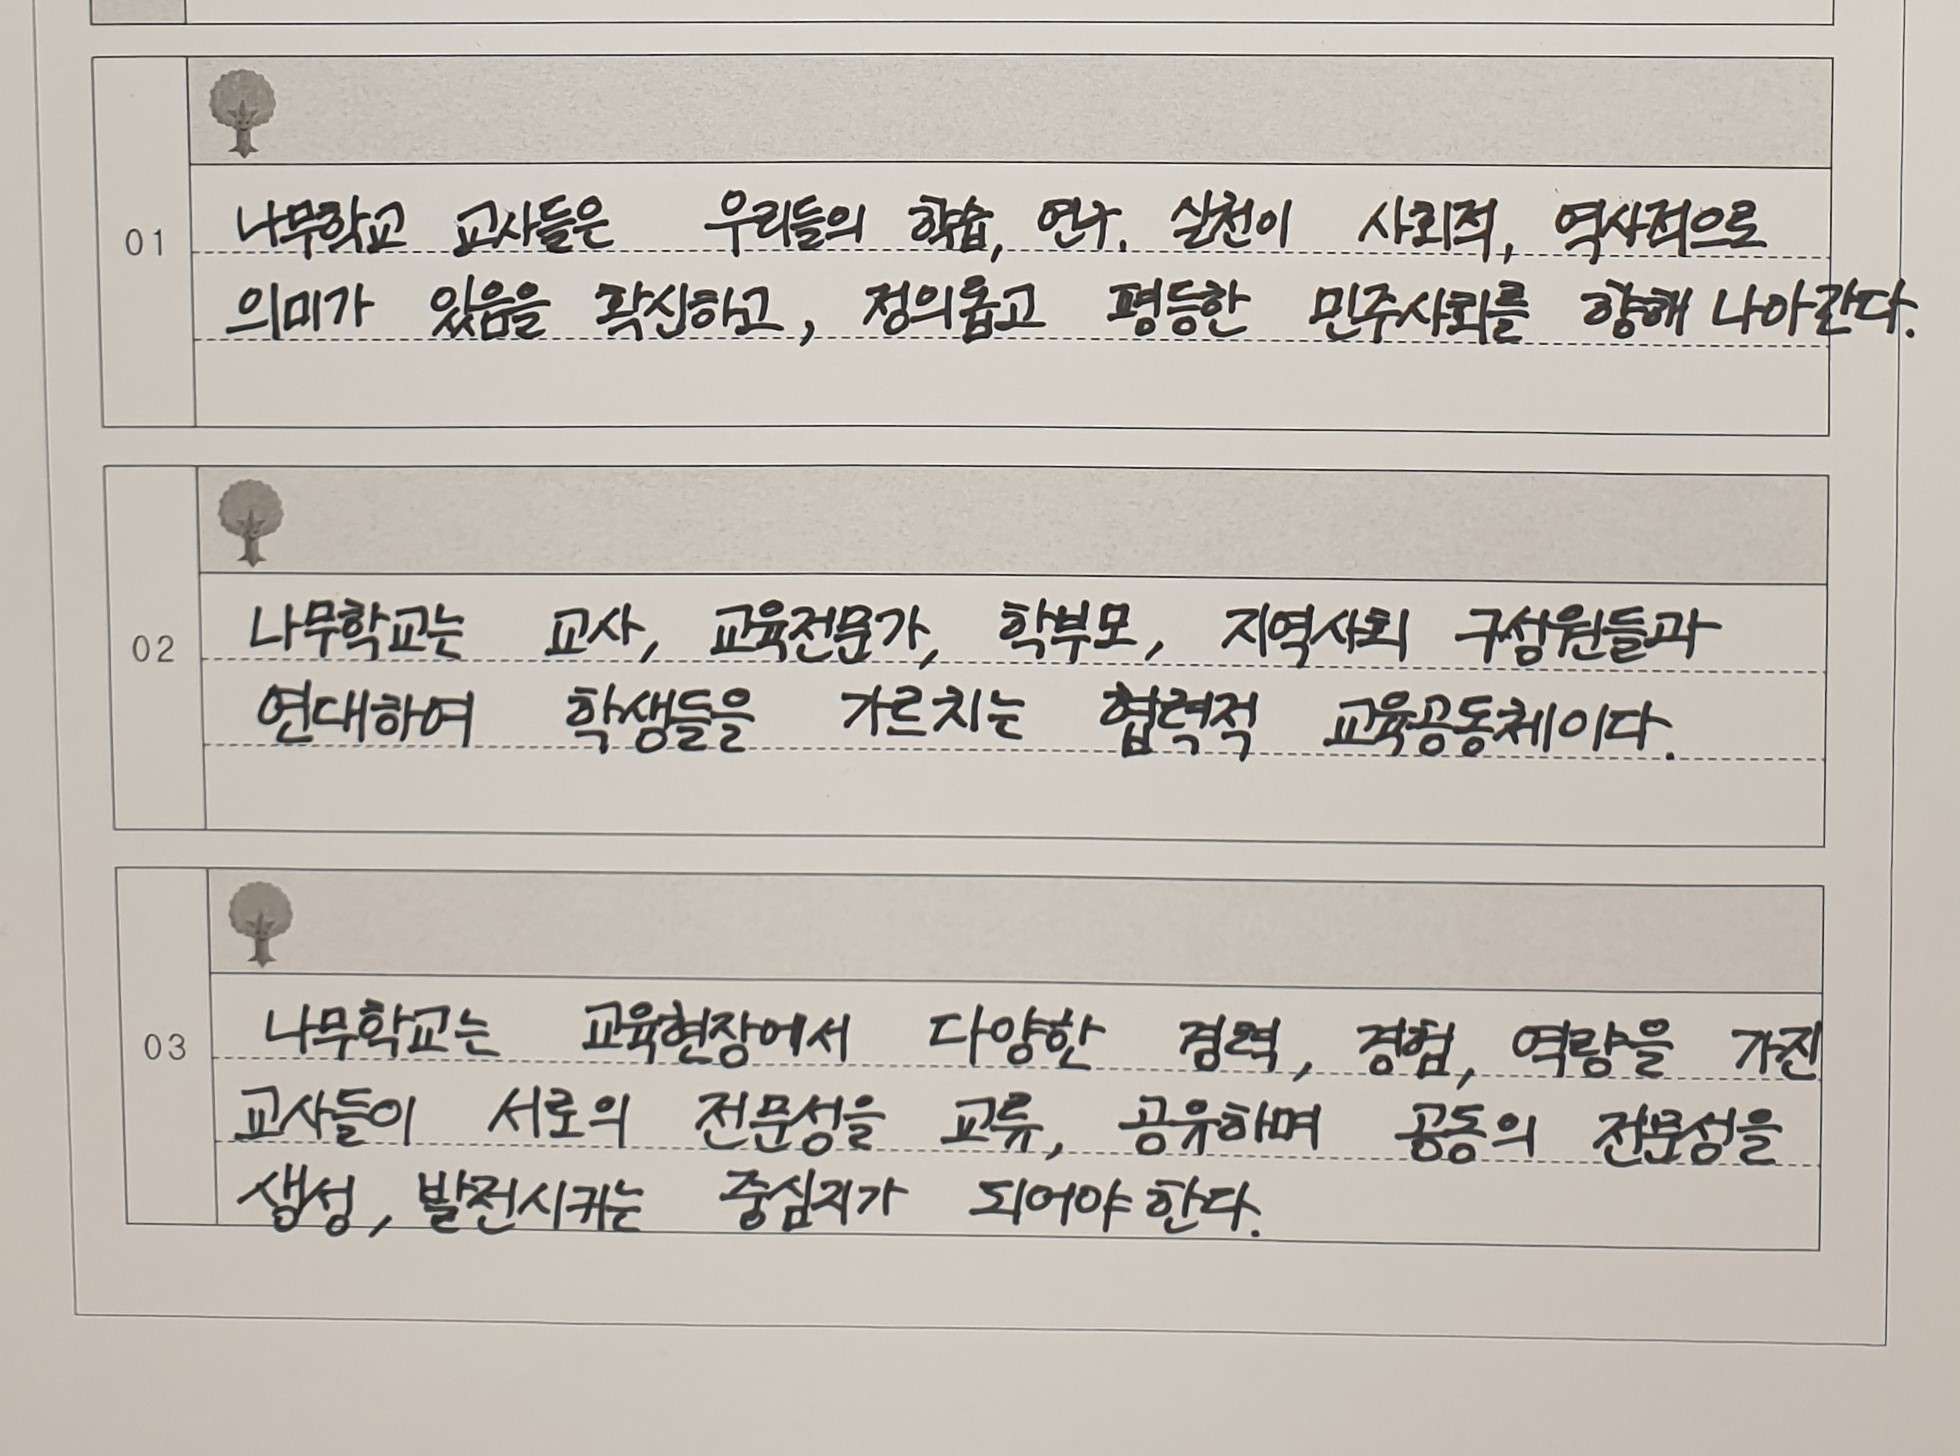 01
나무학교 교사들은 우리들의 학습, 연구. 실천이 사회적, 역사적으로
의미가 있음을 확신하고, 정의롭고 평등한 민주사회를 향해 나아간다.
02
나무학교는 교사, 교육전문가, 학부모, 지역사회 구성원들과
연대하여 학생들을 가르치는 협력적 교육공동체이다.
03
나무학교는 교육현장에서 다양한 경력, 경험, 역량을 가진
교사들이 서로의 전문성을 교류, 공유하며 공동의 전문성을
생성, 발전시키는 중심지가 되어야 한다.